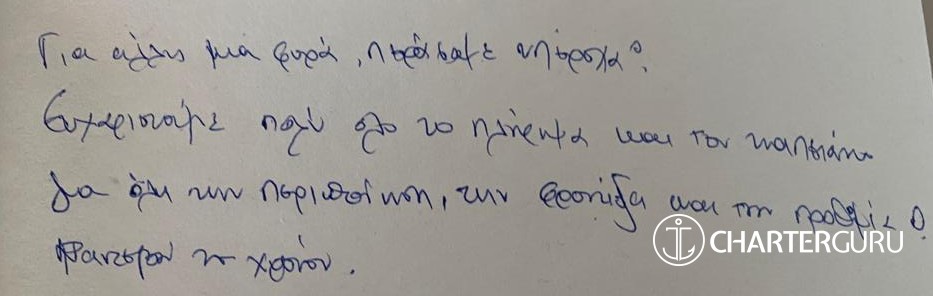 Για άλλη μια φορά, περάσαμε υπέροχα!
Ευχαριστούμε πολύ όλο το πλήρωμα και τον καπετάνιο
για όλη την περιποίηση, την φροντίδα και την προθυμία!
του χρόνου.
CHARTERGURU